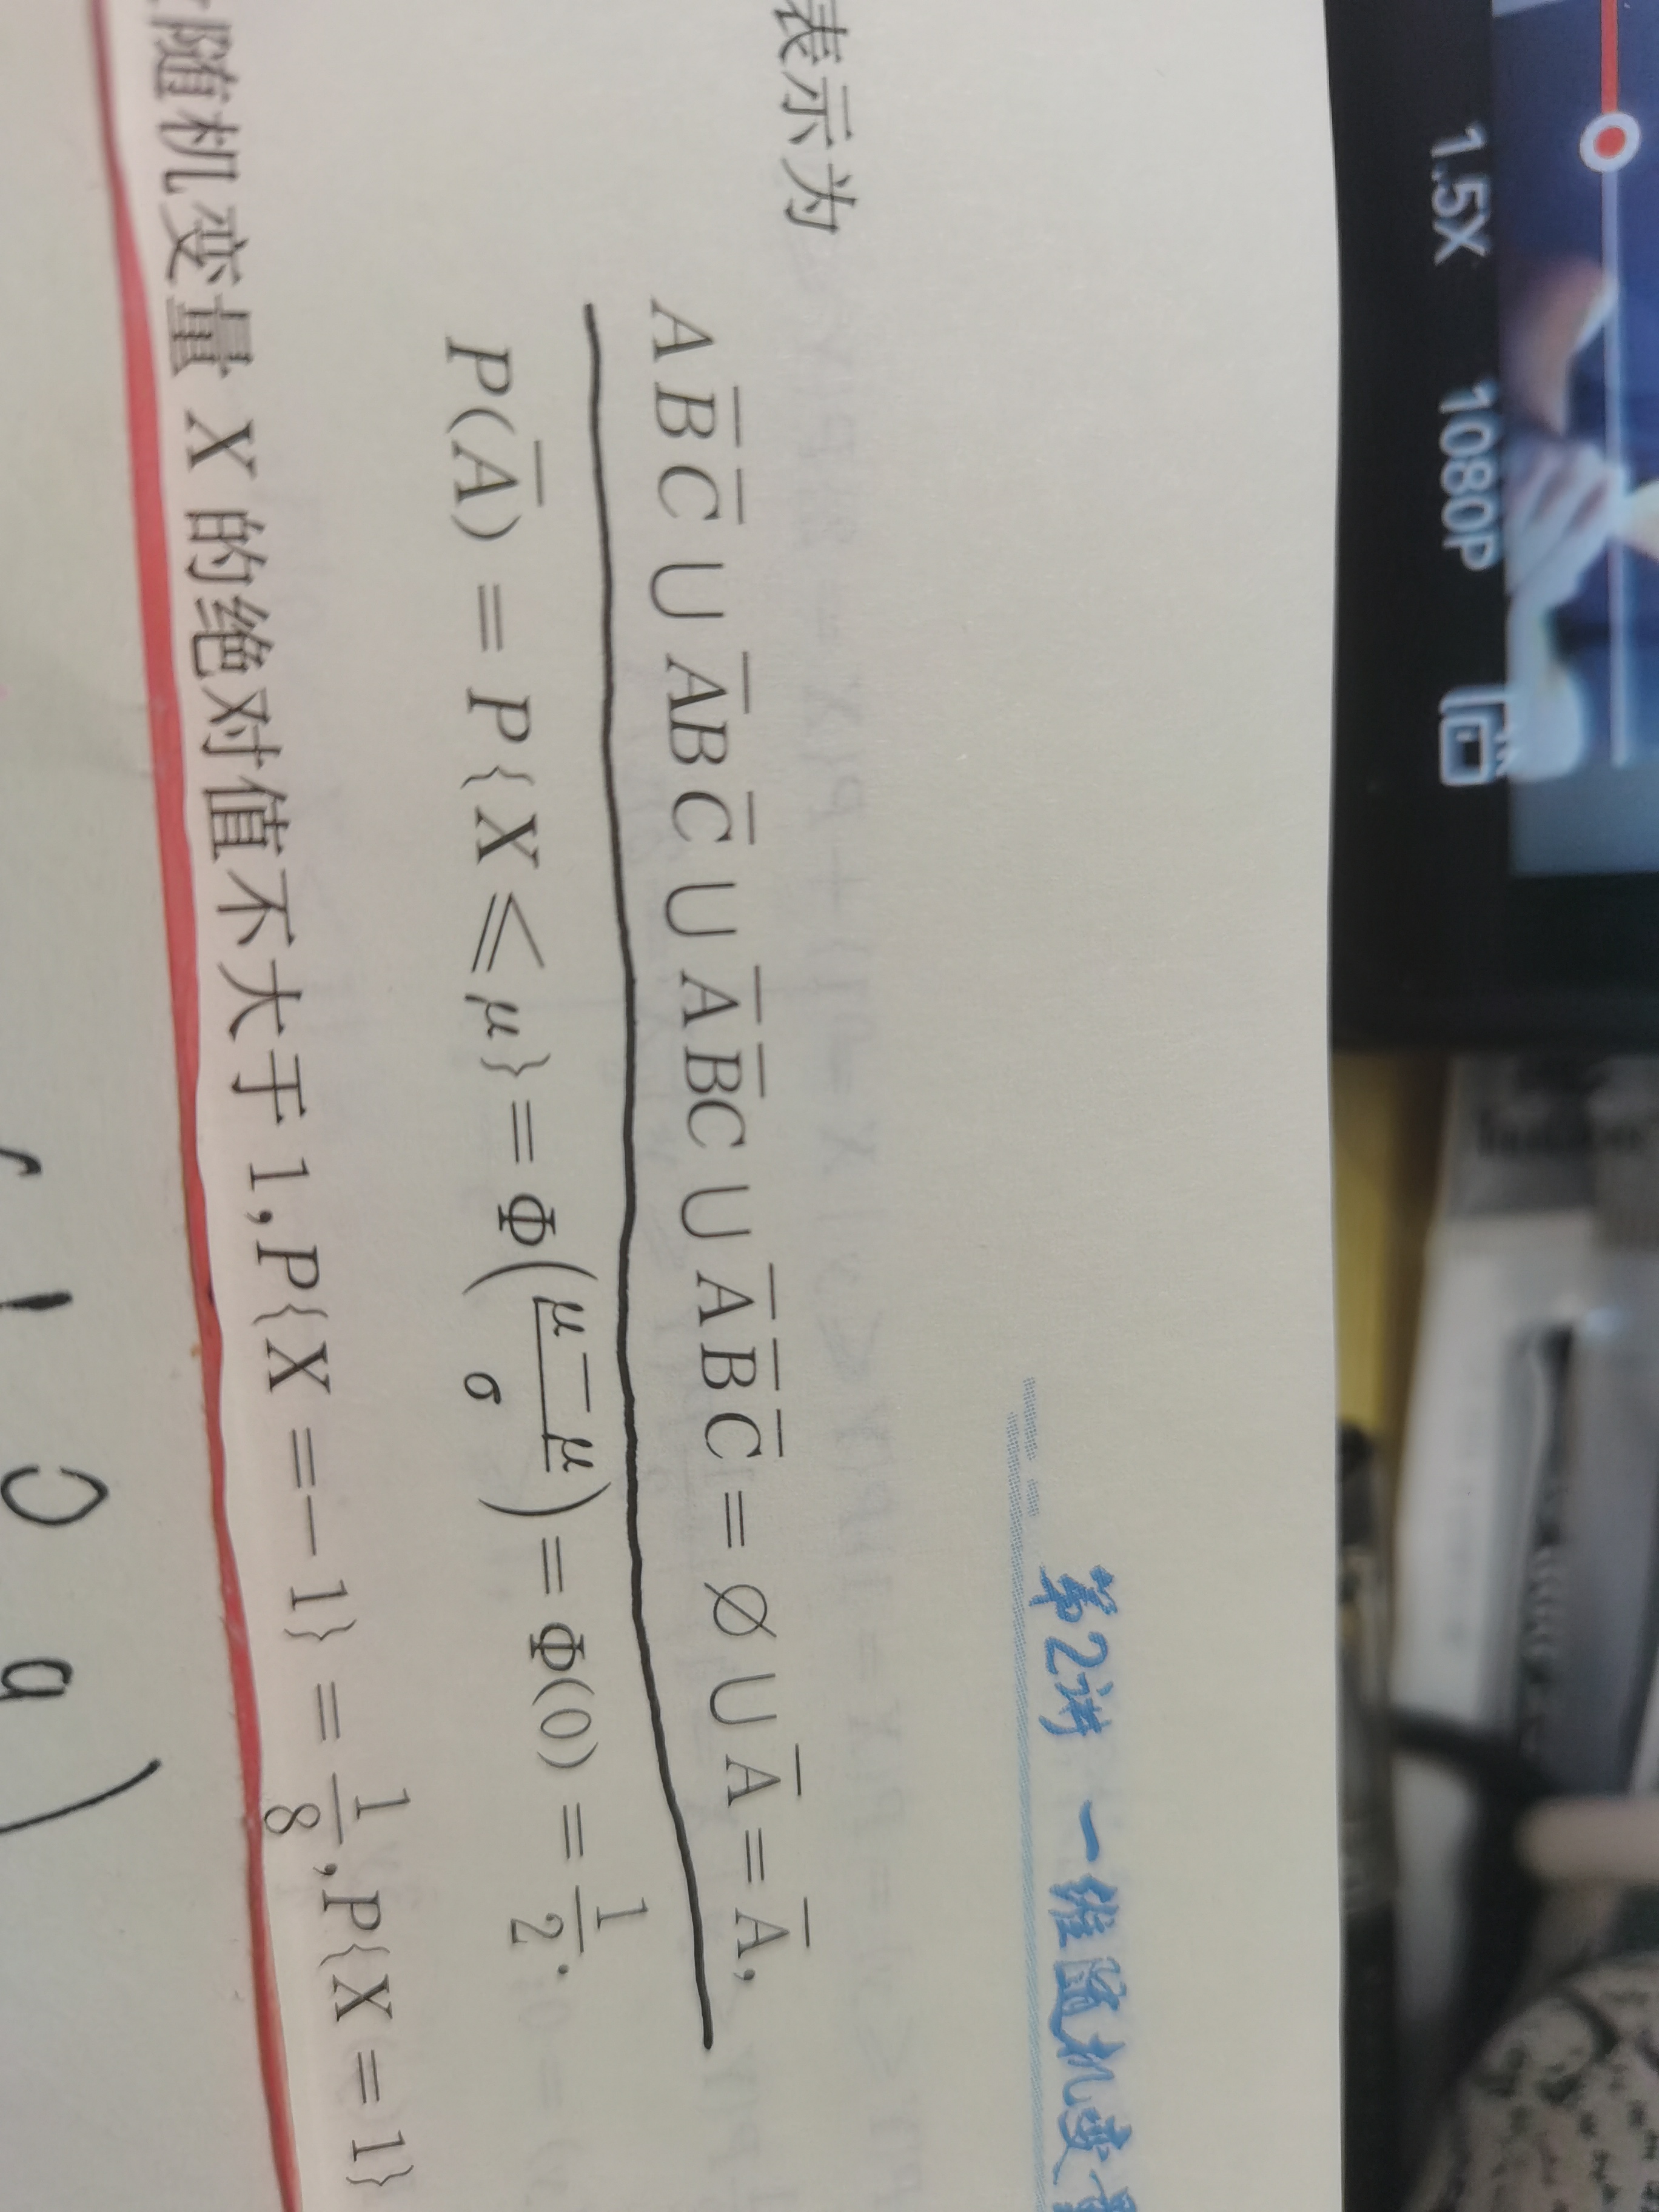 1.5X 1080P
第2讲 一维随机变
表示为
A B̅ C̅ ∪ A̅BC̅ ∪ A̅ B̅C ∪ A̅ B̅ C̅ = ∅ ∪ A̅ = A̅,
P(A̅) = P{X ⩽ μ} = Φ((μ − μ)/σ) = Φ(0) = 1/2.
随机变量 X 的绝对值不大于 1,P{X =− 1} = 1/8,P{X = 1}
1 0 a )